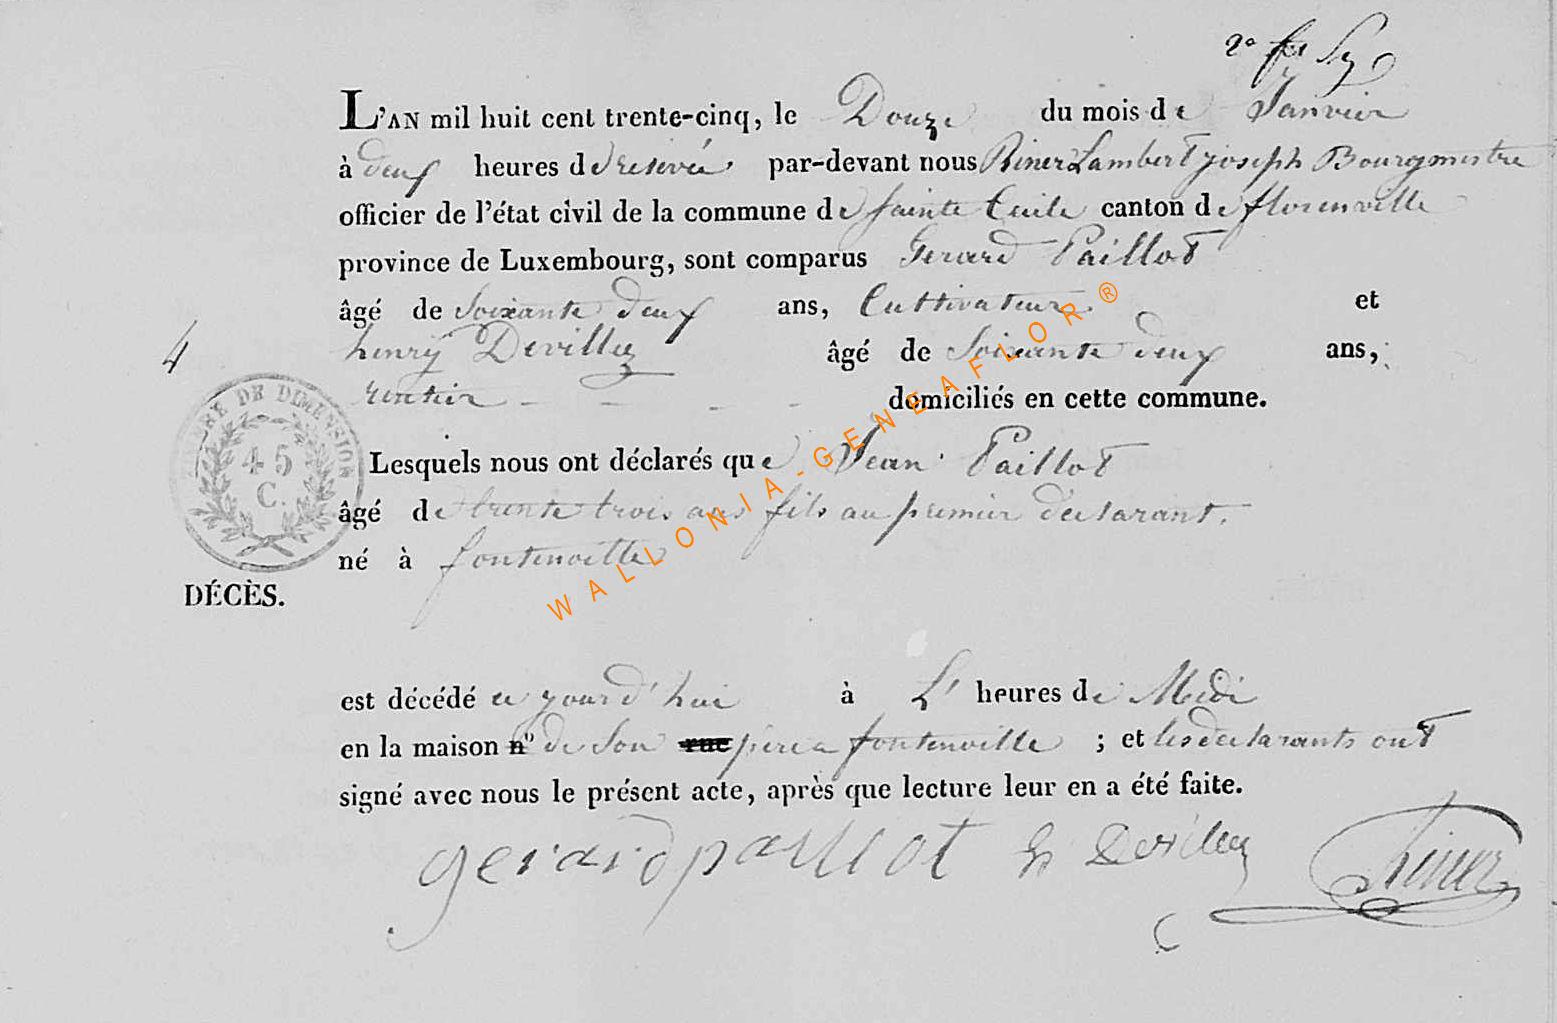 2e
L'AN mil huit cent trente-cinq, le Douze du mois de Janvier
à deux heures de relevée par-devant nous Riner Lambert joseph Bourgmestre
officier de l'état civil de la commune de sainte Cecile canton de florenville
province de Luxembourg, sont comparus Gerard Paillot
âgé de Soixante deux ans, Cultivateur et
henry Devillez âgé de Soixante deux ans,
4
rentier - - - - domiciliés en cette commune.
TIMBRE DE DIMENSION
45
C.
Lesquels nous ont déclarés que Jean Paillot
âgé de trente trois ans fils au premier declarant.
né à fontenoille
DÉCÈS.
est décédé ce jourd'hui à L' heures de Midi
en la maison n° de Son rue pere a fontenoille ; et les declarants ont
signé avec nous le présent acte, après que lecture leur en a été faite.
gerard paillot h Devillez Riner
WALLONIA-GENEAFLOR®